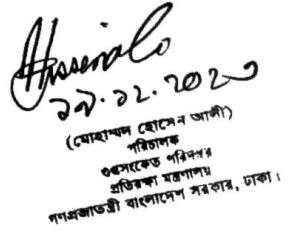 (মোহাম্মদ হোসেন আলী)
পরিচালক
গুপ্তসংকেত পরিদপ্তর
প্রতিরক্ষা মন্ত্রণালয়
গণপ্রজাতন্ত্রী বাংলাদেশ সরকার, ঢাকা।